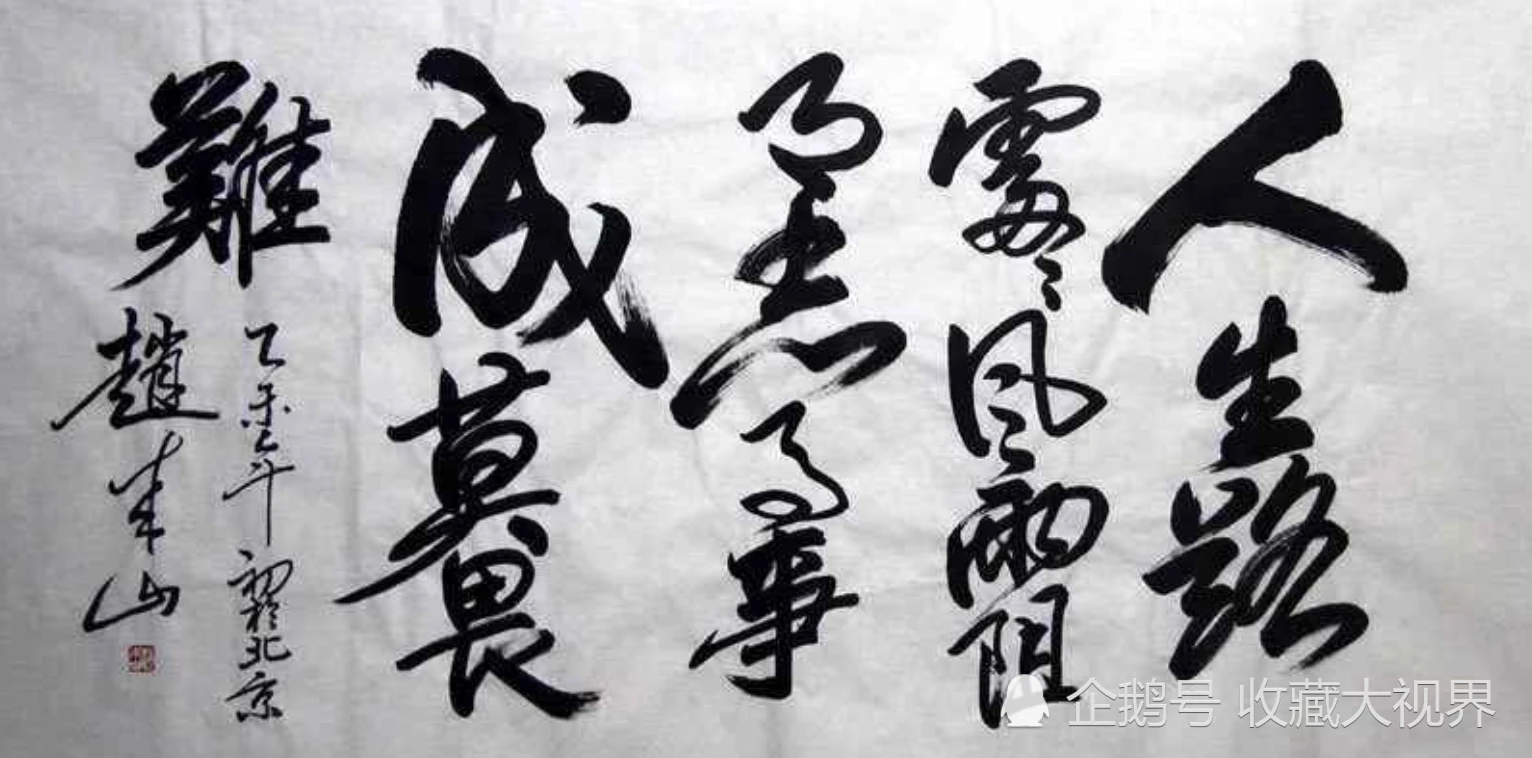 人生路
风雨阻
事
成莫畏
難
乙未年初於北京
趙山
企鹅号 收藏大视界